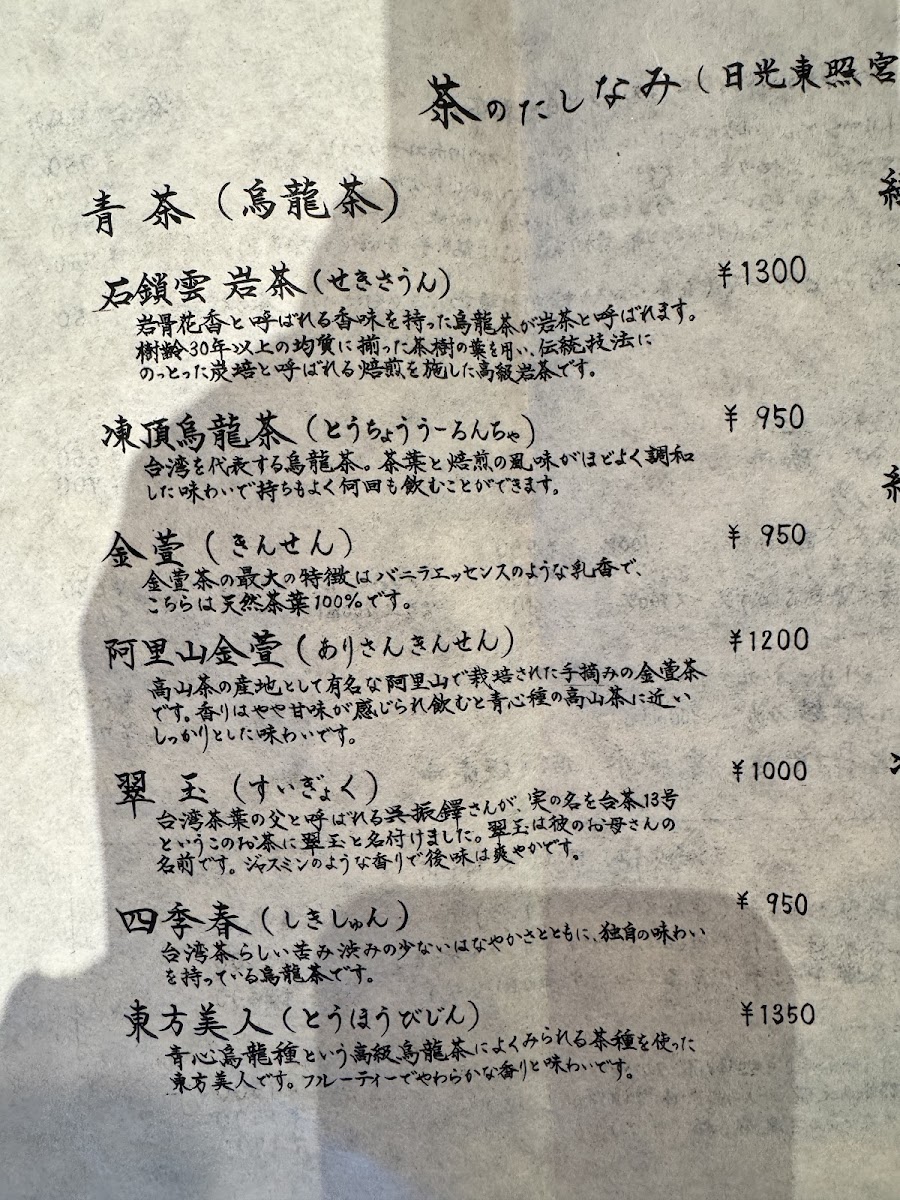 茶のたしなみ(日光東照宮
青茶(烏龍茶)
石鎖雲岩茶(せきさうん) ¥1300
岩骨花香と呼ばれる香味を持った烏龍茶が岩茶と呼ばれます。
樹齢30年以上の均質に揃った茶樹の葉を用い、伝統技法に
のっとった炭培と呼ばれる焙煎を施した高級岩茶です。
凍頂烏龍茶(とうちょううーろんちゃ) ¥950
台湾を代表する烏龍茶。茶葉と焙煎の風味がほどよく調和
した味わいで持ちもよく何回も飲むことができます。
金萱(きんせん) ¥950
金萱茶の最大の特徴はバニラエッセンスのような乳香で、
こちらは天然茶葉100%です。
阿里山金萱(ありさんきんせん) ¥1200
高山茶の産地として有名な阿里山で栽培された手摘みの金萱茶
です。香りはやや甘味が感じられ飲むと青心種の高山茶に近い
しっかりとした味わいです。
翠玉(すいぎょく) ¥1000
台湾茶葉の父と呼ばれる呉振鐸さんが、実の名を台茶13号
というこのお茶に翠玉と名付けました。翠玉は彼のお母さんの
名前です。ジャスミンのような香りで後味は爽やかです。
四季春(しきしゅん) ¥950
台湾茶らしい苦み渋みの少ないはなやかさとともに、独自の味わい
を持っている烏龍茶です。
東方美人(とうほうびじん) ¥1350
青心烏龍種という高級烏龍茶によくみられる茶種を使った
東方美人です。フルーティーでやわらかな香りと味わいです。